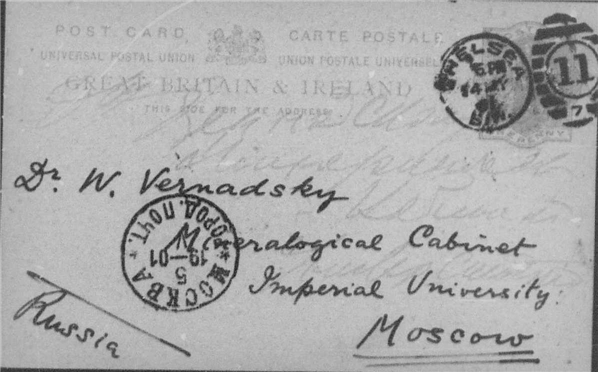 POST CARD CARTE POSTALE
UNIVERSAL POSTAL UNION UNION POSTALE UNIVERSELLE
GREAT BRITAIN & IRELAND
THIS SIDE FOR THE ADDRESS
CHELSEA
11
7
Dr. W. Vernadsky
Mineralogical Cabinet
Imperial University.
Moscow
Russia
МОСКВА
5
19-01
ГОРОД. ПОЧТ.